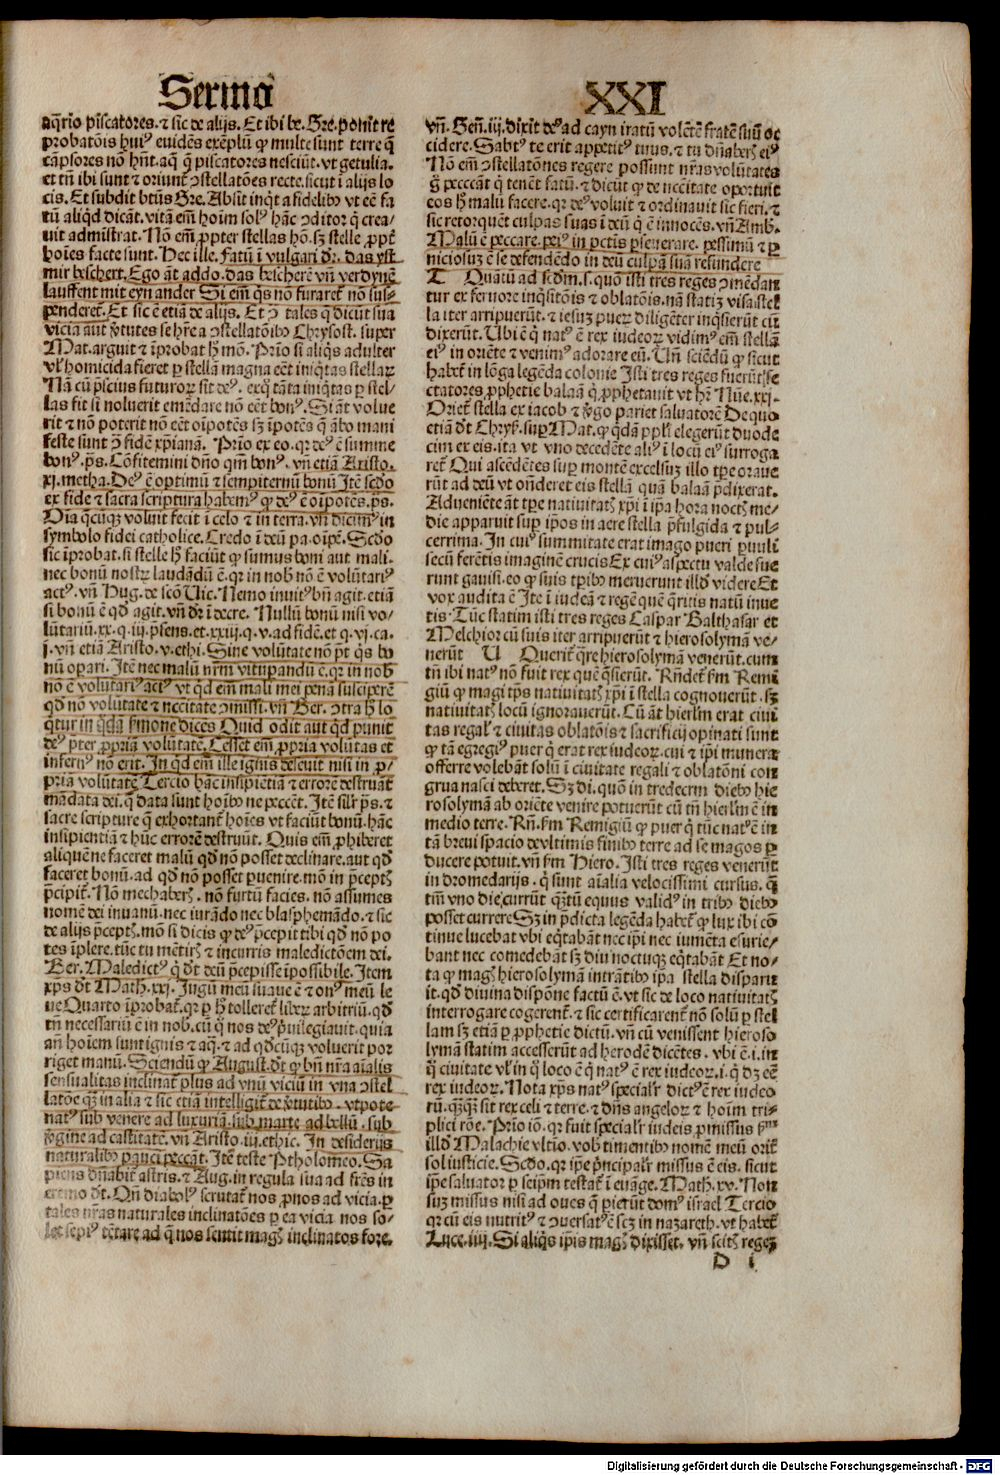 Sermo
XXI
aq̄rio piscatores. ⁊ sic de alijs. Et ibi be. Gre. ponit re
probatōis huiꝰ euidēs exēplū ꝙ multe sunt terre q̄
cāpsores nō hn̄t. aq̄ q̄ piscatores nesciūt. vt getulia.
et tn̄ ibi sunt ⁊ oriunt̄ ꝯstellatōes recte. sicut ī alijs lo
cis. Et subdit btūs Gre. Absit inqt̄ a fidelibꝰ vt eē fa
tū aliqd̄ dicāt. vitā em̄ hoīm solꝰ hāc ꝯditor q̄ crea⸗
uit admīstrat. Nō em̄ ꝓpter stellas hō. sꝫ stelle ꝓpt̄
hoīes facte sunt. Hec ille. Fatū ī vulgari dr̄. das yst
mir beschert. Ego āt addo. das bescherē vn̄ verdynē
lauffent mit eyn ander Si em̄ q̄s nō furaret̄ nō sus⸗
penderet̄. Et sic ē etiā de alijs. Et ꝯ tales q̄ dicūt sua
vicia aut v̄tutes se hr̄e a ꝯstellatōibꝰ Chrysost. super
Mat. arguit ⁊ īprobat h̄ mō. Prīo si aliq̄s adulter
vl̓ homicida fieret ꝑ stellā magna eēt iniq̄tas stellaꝝ
Nā cū p̄scius futuroꝝ sit deꝰ. ex q̄ tāta iniq̄tas ꝑ stel⸗
las fit si noluerit emēdare nō eēt bonꝰ. Si āt volue
rit ⁊ nō poterit nō eēt oīpotēs sꝫ īpotēs q̄ ābo mani
feste sunt ꝯ̄ fidē xp̄ianā. Prīo ex eo. qꝛ deꝰ ē summe
bonꝰ. ps̄. Cōfitemini dn̄o qm̄ bonꝰ. vn̄ etiā Aristo.
xi. metha. Deꝰ ē optimū ⁊ sempiternū bonū Itē scd̄o
ex fide ⁊ sacra scriptura habemꝰ ꝙ deꝰ ē oīpotēs. ps̄.
Oīa q̄cūqꝫ voluit fecit ī celo ⁊ in terra. vn̄ dicimꝰ in
symbolo fidei catholice. Credo ī deū pa. oīpt̄. Scd̄o
sic īprobat. si stelle h̄ faciūt ꝙ sumus boni aut mali.
nec bonū nostꝝ laudādū ē. qꝛ in nob̄ nō ē volūtariꝰ
actꝰ. vn̄ Hug. de scō Vic. Nemo inuitꝰ bn̄ agit. etiā
si bonū ē qd̄ agit. vn̄ dr̄ ī decre. Nullū bonū nisi vo⸗
lūtariū. xx. q. iij. p̄sens. et. xxiij. q. v. ad fidē. et q. vj. ca.
j. vn̄ etiā Aristo. v. ethi. Sine volūtate nō pt̄ q̄s bo
nū oꝑari. Itē nec malū nr̄m vitupandū ē. qꝛ in nob̄
nō ē volūtariꝰ actꝰ vt qd̄ em̄ mali mei penā susciperē
qd̄ nō volūtate ⁊ nccitate ꝯmissi. vn̄ Ber. ꝯtra h̄ lo
qt̄ur in q̄dā ẜmone dicēs Quid odit aut qd̄ punit
deꝰ p̄ter ꝓpriā volūtatē. Cesset em̄ ꝓpria volūtas et
infernꝰ nō erit. In qd̄ em̄ ille ignis deseuit nisi in ꝓ⸗
priā volūtatē Tercio hāc insipiētiā ⁊ errorē destruāt
mādata dei. q̄ data sunt hoībꝰ ne peccēt. Itē silr̓ ps̄. ⁊
sacre scripture q̄ exhortant̄ hoīes vt faciūt bonū. hāc
insipientiā ⁊ hūc errorē destruūt. Quis em̄ ꝓhiberet
aliquē ne faceret malū qd̄ nō posset declinare. aut qd̄
faceret bonū. ad qd̄ nō posset ꝑuenire. mō in p̄ceptꝭ
p̄cipit̄. Nō mechaberꝭ. nō furtū facies. nō assumes
nomē dei inuanū. nec iurādo nec blasphemādo. ⁊ sic
de alijs p̄ceptꝭ. mō si dicis ꝙ deꝰ p̄cepit tibi qd̄ nō po
tes īplere. tūc tu mētirꝭ ⁊ incurris maledictōem dei.
Ber. Maledictꝰ q̄ dt̄ deū p̄cepisse īpossibile. Item
xp̄s dt̄ Math. xxj. Jugū meū suaue ē ⁊ onꝰ meū le
ue Quarto īprobat̄. qꝛ ꝑ h̄ tolleret̄ liberꝝ arbitriū. qd̄
tn̄ necessariū ē in nob̄. cū q̄ nos deꝰ p̄uilegiauit. quia
an̄ hoīem sunt ignis ⁊ aq̄. ⁊ ad qd̄cūqꝫ voluerit por
riget manū. Sciendū ꝙ August. dt̄ ꝙ bn̄ nr̄a aīalis
sensualitas inclinat̄ plus ad vnū viciū in vna ꝯstel
latōe qꝫ in alia ⁊ sic etiā intelligit̄ de v̄tutibꝰ. vtpote
natꝰ sub venere ad luxuriā. sub marte ad bellū. sub
v̄gine ad castitatē. vn̄ Aristo. iij. ethic. In desiderijs
naturalibꝰ pauci peccāt. Itē teste Ptholomeo. Sa
piens dn̄abit̄ astris. ⁊ Aug. in regula sua ad fr̄es in
ermo dt̄. Qn̄ diabolꝰ scrutat̄ nos ꝓnos ad vicia. ꝑ
tales nr̄as naturales inclinatōes ꝑ ea vicia nos so⸗
let sepiꝰ tētare ad q̄ nos sentit magꝭ inclinatos fore.
vn̄. Gen̄. iij. dixit deꝰ ad cayn iratū volētē fratrē suū oc
cidere. Sabtꝰ te erit appetitꝰ tuus. ⁊ tu dn̄aberꝭ eiꝰ
Nō em̄ ꝯstellatōnes regere possunt nr̄as volūtates
g̊ peccāt q̄ tenēt fatū. ⁊ dicūt ꝙ de nccitate oportuit
eos h̄ malū facere. qꝛ deꝰ voluit ⁊ ordinauit sic fieri. ⁊
sic retorquēt culpas suas ī deū q̄ ē innocēs. vn̄ Amb.
Malū ē peccare. peiꝰ in pctīs pseuerare. pessimū ⁊ ꝑ
niciosuꝫ ē se defendēdo in deū culpā suā refundere
T Quātū ad scd̄m. s. quō isti tres reges ꝯmēdan
tur ex feruore inq̄sitōis ⁊ oblatōis. nā statiꝫ visa stel
la iter arripuerūt. ⁊ iesuꝫ pueꝝ diligēter inq̄sierūt cū
dixerūt. Ubi ē q̄ natꝰ ē rex iudeoꝝ vidimꝰ em̄ stellā
eiꝰ in oriēte ⁊ venimꝰ adorare eū. Un̄ sciēdū ꝙ sicut
habet̄ in lōga legēda colonie Isti tres reges fuerūt se
ctatores ꝓphetie balaā q̄ ꝓphetauit vt hr̄ Nūe. xxj.
Oriet̄ stella ex iacob ⁊ v̄go pariet saluatorē De quo
etiā dt̄ Chryſ. suꝑ Mat. ꝙ q̄dā ppl̓i elegerūt duode
cim ex eis. ita vt vno decedēte aliꝰ ī locū eiꝰ surroga
ret̄ Qui ascēdētes suꝑ montē excelsuꝫ illo tꝑe oraue
rūt ad deū vt on̄deret eis stellā quā balaā p̄dixerat.
Adueniēte āt tꝑe natiuitatꝭ xp̄i ī ipa hora noctꝭ me⸗
die apparuit suꝑ ip̄os in aere stella p̄fulgida ⁊ pul⸗
cerrima. In cuiꝰ summitate erat imago pueri ꝑuuli
secū ferētis imaginē crucis Ex cuiꝰ aspectu valde fue
runt gauisi. eo ꝙ suis tꝑibꝰ meruerunt illd̄ videre Et
vox audita ē Ite ī iudeā ⁊ regē quē q̄ritis natū inue
tis Tūc statim isti tres reges Caspar Balthasar et
Melchior cū suis iter arripuerūt ⁊ hierosolymā ve⸗
nerūt U Querit̄ q̄re hierosolymā venerūt. cum
tn̄ ibi natꝰ nō fuit rex quē q̄sierūt. Rn̄det̄ ẜm Remi
giū ꝙ magi tp̄s natiuitatꝭ xp̄i ī stella cognouerūt. sꝫ
natiuitatꝭ locū ignorauerūt. Cū āt hierl̓m erat ciui
tas regal̓ ⁊ ciuitas oblatōis ⁊ sacrificij opinati sunt
ꝙ tā egregiꝰ puer q̄ erat rex iudeoꝝ. cui ⁊ ip̄i munera
offerre volebāt solū ī ciuitate regali ⁊ oblatōni con
grua nasci deberet. Sꝫ di. quō in tredecim diebꝰ hie
rosolymā ab oriēte venire potuerūt cū tn̄ hierl̓m ē in
medio terre. Rn̄. ẜm Remigiū ꝙ puer q̄ tūc natꝰ ē in
tā breui spacio de vltimis finibꝰ terre ad se magos ꝑ
ducere potuit. vn̄ ẜm Hiero. Isti tres reges venerūt
in dromedarijs. q̄ sunt aīalia velocissimi cursus. q̄
tm̄ vno die currūt qꝫtū equus validꝰ in tribꝰ diebꝰ
posset currere Sꝫ in p̄dicta legēda habet̄ ꝙ lux ibi cō
tinue lucebat vbi eq̄tabāt nec ip̄i nec iumēta esurie⸗
bant nec comedebāt sꝫ diu noctuqꝫ eq̄tabāt Et no⸗
ta ꝙ magꝭ hierosolymā intrātibꝰ ip̄a stella disparu
it. qd̄ diuina dispōne factū ē. vt sic de loco natiuitatꝭ
interrogare cogerent̄. ⁊ sic certificarent̄ nō solū ꝑ stel
lam sꝫ etiā ꝑ ꝓphetie dictū. vn̄ cū venissent hieroso
lymā statim accesserūt ad herodē dicētes. vbi ē. i. in
q̄ ciuitate vl̓ in q̄ loco ē q̄ natꝰ ē rex iudeoꝝ. i. q̄ dꝫ eē
rex iudeoꝝ. Nota xp̄s natꝰ specialr̓ dictꝰ ē rex iudeo
rū. qꝫqꝫ sit rex celi ⁊ terre. ⁊ dn̄s angeloꝝ ⁊ hoīm tri⸗
plici rōe. Prīo iō. qꝛ fuit specialr̓ iudeis ꝓmissus ẜm
illd̄ Malachie vltīo. vob̄ timentibꝰ nomē meū oriet̄
sol iusticie. Scd̄o. qꝛ ip̄e p̄ncipalr̓ missus ē eis. sicut
ip̄e saluator ꝑ seip̄m testat̄ ī euāge. Math. xv. Non
suꝫ missus nisi ad oues q̄ pierūt domꝰ israel Tercio
qꝛ cū eis nutritꝰ ⁊ ꝯuersatꝰ ē scꝫ in nazareth. vt habet̄
Luce. iiij. Si aliq̄s ip̄is magꝭ dixisset. vn̄ scitꝭ regeꝫ
D i
Digitalisierung gefördert durch die Deutsche Forschungsgemeinschaft - DFG